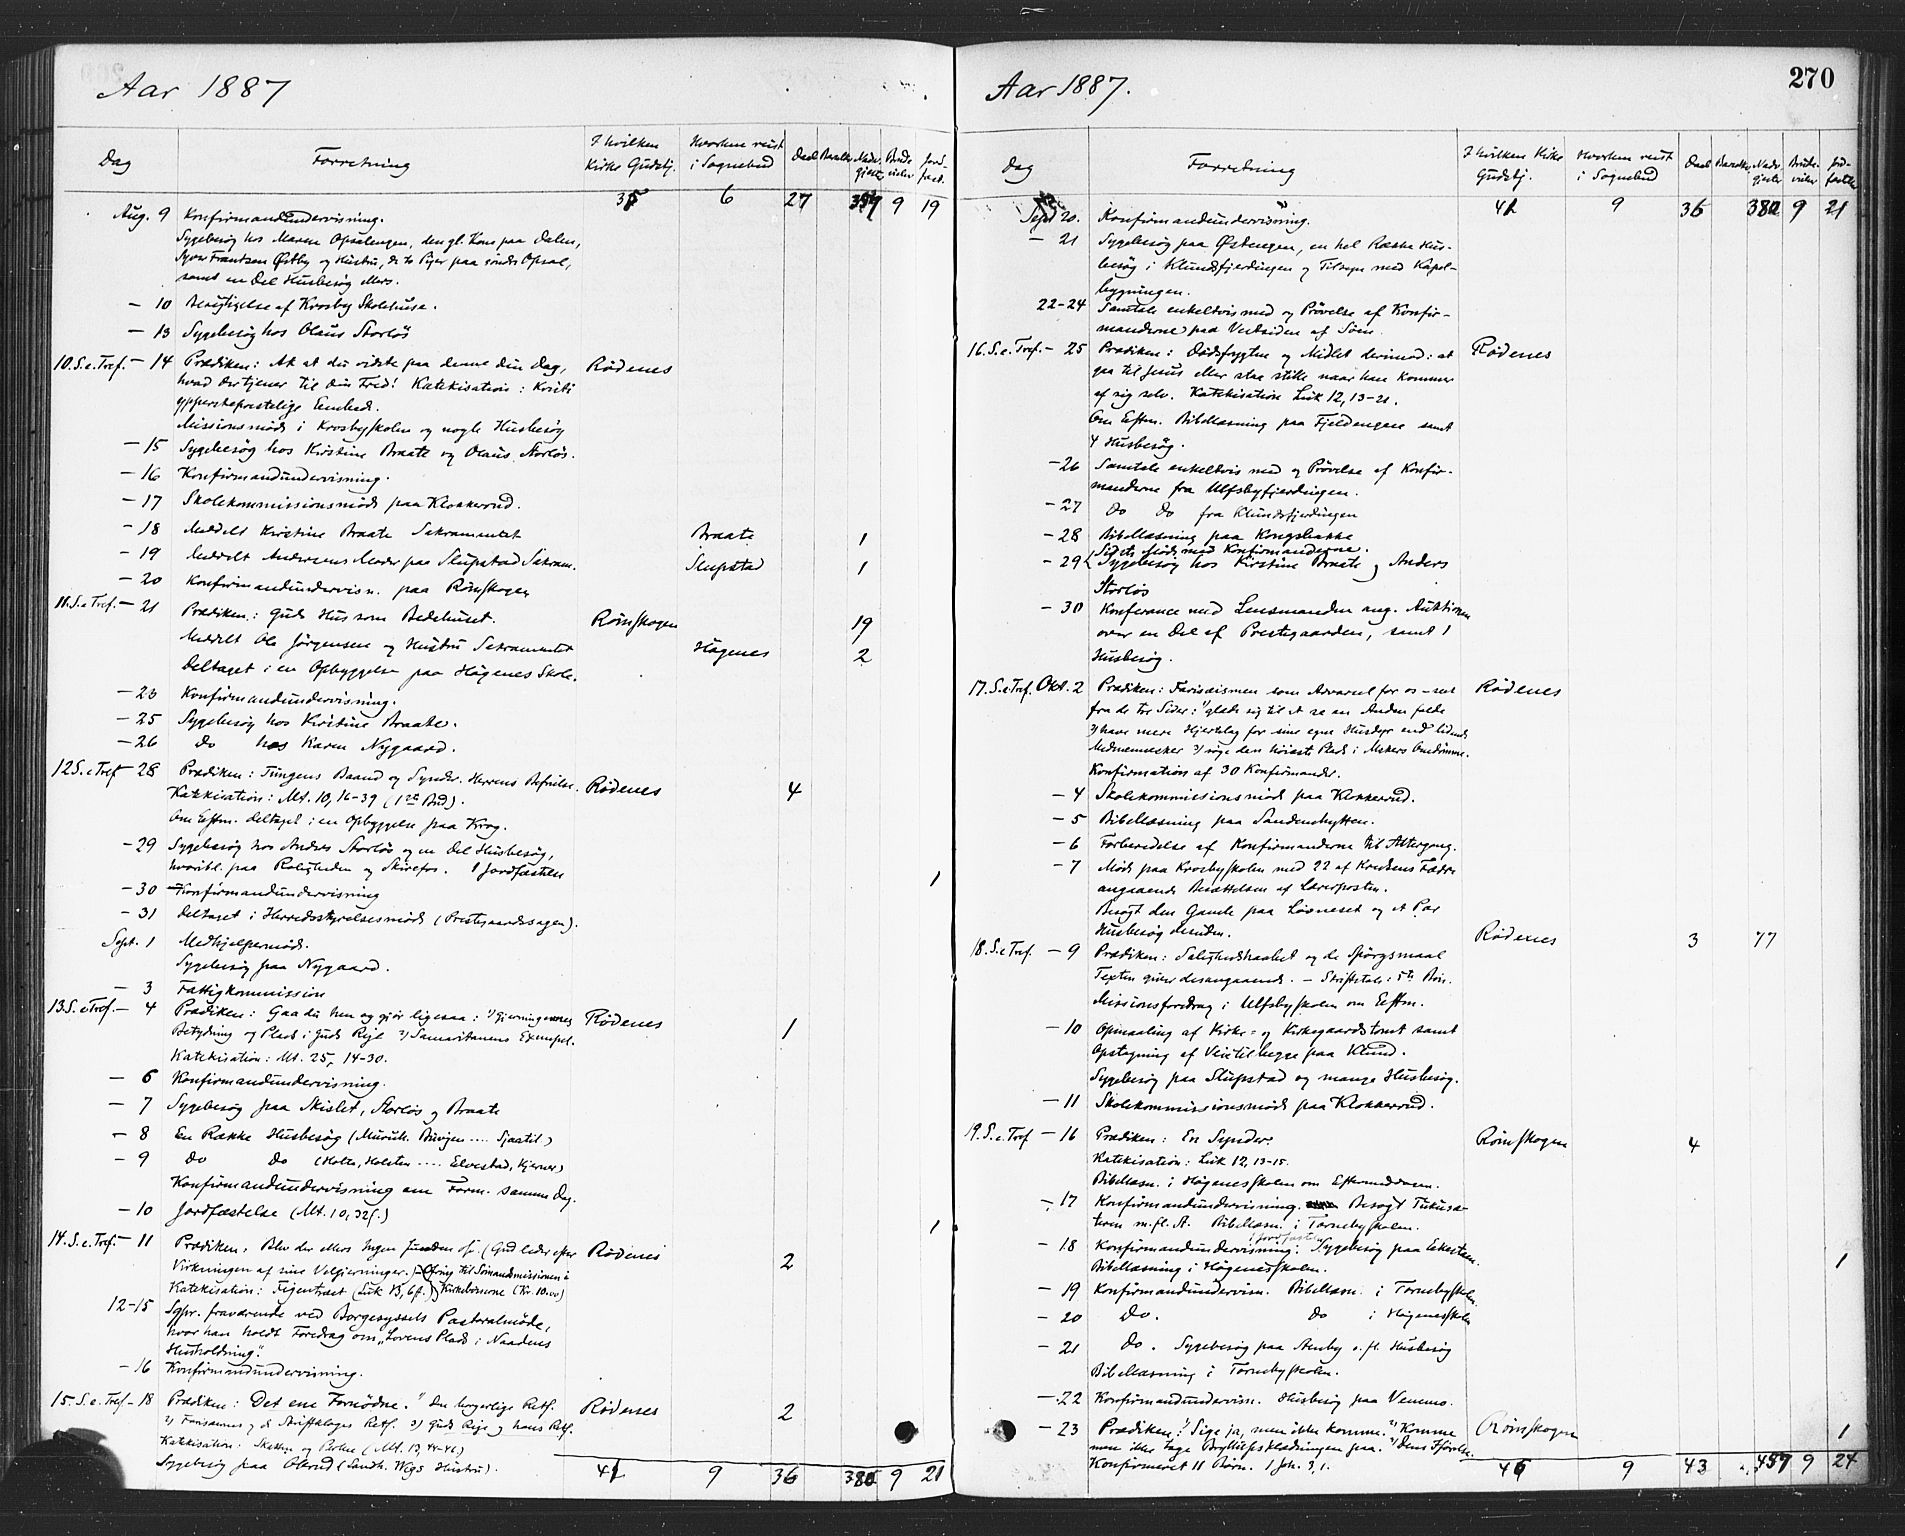 Aar 1887
Dag Forretning I hvilken Kirke Gudstj. Hvorhen reist i Sognebud Daab Barselkv. Nadv. gjester Brude vielser Jord- fæst.
6 27 9 19
Aug. 9 Konfirmandundervisning.
Sygebesøg hos Maren Opsalengen, den gl. Kone paa Dalen,
Syver Frantzen Østby og Hustru, de to Piger paa søndr Opsal,
samt en Del Husbesøg ellers.
— 10 Besigtigelse af Krosby Skolehuse.
— 13 Sygebesøg hos Olaus Storløs
10. S. e. Tref. — 14 Prædiken: Ak at du vidste paa denne din Dag, Rødenes
hvad der tjener til din Fred! Katekisation: Kristi
ypperstepræstelige Embede.
Missionsmøde i Krosbyskolen og nogle Husbesøg
— 15 Sygebesøg hos Kirstine Braate og Olaus Storløs.
— 16 Konfirmandundervisning.
— 17 Skolekommissionsmøde paa Klokkerud.
— 18 Meddelt Kirstine Braate Sakramentet Braate 1
— 19 Meddelt Andreas's Moder paa Slupstad Sakram. Slupstad 1
— 20 Konfirmandundervisn. paa Rømskogen
11. S. e. Tref. — 21 Prædiken: Guds Hus som Bedehuset. Rømskogen 19
Meddelt Ole Jørgensen og Hustru Sakramentet Høgenes 2
Deltaget i en Opbyggelse paa Høgenes Skole.
— 23 Konfirmandundervisning.
— 25 Sygebesøg hos Kirstine Braate.
— 26 Do hos Karen Nygaard.
12 S. e Tref — 28 Prædiken: Tungens Baand og Synder. Herrens Befrielse. Rødenes 4
Katekisation: Mt. 10, 16-39 (1ste Bud).
Om Eftm. deltaget i en Opbyggelse paa Krog.
— 29 Sygebesøg hos Anders Storløs og en Del Husbesøg,
hvoribl. paa Roligheden og Skirefos. 1 Jordfæstelse 1
— 30 Konfirmandundervisning
— 31 Deltaget i Herredsstyrelsesmøde (Prestegaardssagen).
Sept. 1 Medhjelpermøde.
Sygebesøg paa Nygaard.
— 3 Fattigkommission
13. S. e Tref. — 4 Prædiken: Gaa du hen og gjør ligesaa: 1) Gjerningernes Rødenes 1
Betydning og Plads i Guds Rige 2) Samaritanens Exempel.
Katekisation: Mt. 25, 14-30.
— 6 Konfirmandundervisning.
— 7 Sygebesøg paa Skislet, Storløs og Braate
— 8 En Række Husbesøg
— 9 Do Do
Konfirmandundervisning om Form. samme Dag.
— 10 Jordfæstelse (Mt. 10, 32f.) 1
14. S. e. Tref. — 11 Prædiken: Blev der ellers Ingen funden osv. (Gud leder efter Rødenes 2
Virkningen af sine Velgjerninger.) Ofring til Sømandsmissionen i
Katekisation: Figentræet (Luk 13, 6f.) Kirkebøsserne (Kr. 10.00)
12-15 Sgpr. fraværende ved Borgesyssels Pastoralmøde,
hvor han holdt Foredrag om „Lovens Plads i Naadens
Husholdning".
— 16 Konfirmandundervisning.
15. S. e. Tref — 18 Prædiken: Det ene Fornødne. 1) Den borgerlige Retf. Rødenes 2
2) Farisæernes og de Skriftkloges Retf. 3) Guds Rige og hans Retf.
Katekisation: Skatten og Perlen (Mt. 13, 44-46.)
Sygebesøg paa
41 9 36 380 9 21
Aar 1887. 270
Dag Forretning I hvilken Kirke Gudstj. Hvorhen reist i Sognebud Daab Barselkv. Nadv. gjester Brude- vielser Jord- fæstelse
Sept 20. Konfirmandundervisning. 41 9 36 380 9 21
— 21 Sygebesøg paa Østengen, en hel Række Hus-
besøg i Klundsfjerdingen og Tilsyn med Kapel-
bygningen.
22-24 Samtale enkeltvis med og Prøvelse af Konfir-
manderne paa Vestsiden af Søen.
16. S. e. Tref. — 25 Prædiken: Dødsfrygten og Midlet derimod: at Rødenes
gaa til Jesus eller staa stille naar han kommer
af sig selv. Katekisation Luk 12, 13-21.
Om Eftm. Bibellæsning paa Fjeldengen samt
4 Husbesøg.
— 26 Samtale enkeltvis med og Prøvelse af Konfir-
manderne fra Ulfsbyfjerdingen.
— 27 Do Do fra Klundsfjerdingen
— 28 Bibellæsning paa Kongsbakke
Sidste Møde med Konfirmanderne.
— 29 Sygebesøg hos Kirstine Braate og Anders
Storløs
— 30 Konferance med Lensmanden ang. Auktionen
over en Del af Prestegaarden, samt 1
Husbesøg.
17. S. e Tref. Okt. 2 Prædiken: Farisæismen som Advarsel for os - set Rødenes
fra de tre Sider: 1) glæde sig til at se en Anden falde
2) have mere Hjertelag for sine egne Husdyr end lidende
Medmennesker 3) søge den høieste Plads i Andres Omdømme.
Konfirmation af 30 Konfirmander.
— 4 Skolekommissionsmøde paa Klokkerud.
— 5 Bibellæsning paa Sandemhytten.
— 6 Forberedelse af Konfirmanderne til Altergang.
— 7 Møde paa Krosbyskolen med 22 af Kredsens Fædre
angaaende Besættelsen af Lærerposten.
Besøgt den Gamle paa Løvneset og et Par
Husbesøg desuden.
18. S. e Tref. — 9 Prædiken: Salighedshaabet og de Spørgsmaal Rødenes 3 77
Texten giver desangaaende. — Skriftetale: 5te Bøn.
Missionsforedrag i Ulfsbyskolen om Eftm.
— 10 Opmaaling af Kirke- og Kirkegaardstomt samt
Opstegning af Vei til begge paa Klund.
Sygebesøg paa Slupstad og mange Husbesøg.
— 11 Skolekommissionsmøde paa Klokkerud.
19. S. e. Tref — 16 Prædiken: En Synder. Rømskogen 4
Katekisation: Luk 12, 13-15.
Bibellæsn. i Høgenesskolen om Eftermiddagen.
— 17 Konfirmandundervisning. Besøgt
m. fl. St. Bibellæsn. i Tørnebyskolen.
1 Jordfæstelse
— 18 Konfirmandundervisning. Sygebesøg paa 1
Bibellæsning i Høgenesskolen.
— 19 Konfirmandundervisn. Bibellæsn. i Tørnebyskolen.
— 20 Do. Do i Høgenesskolen
— 21 Do. Sygebesøg paa o. fl. Husbesøg
Bibellæsning i Tørnebyskolen.
— 22 Konfirmandundervisn. Husbesøg paa
— 23 Prædiken: 1) Sige ja, men ikke komme. 2) Komme Rømskogen 1
men ikke tage Bryllupsklædningen paa. 3)
Konfirmeret 11 Børn. 1 Joh. 3, 1.
9 43 457 9 24